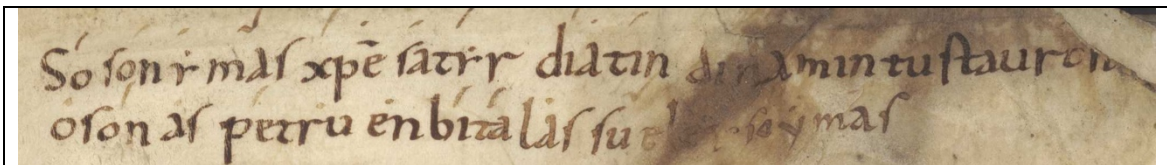 Soson imas xpē satir diatin dinamin tu stauron
oson as petru en bitalassu eleison ymas